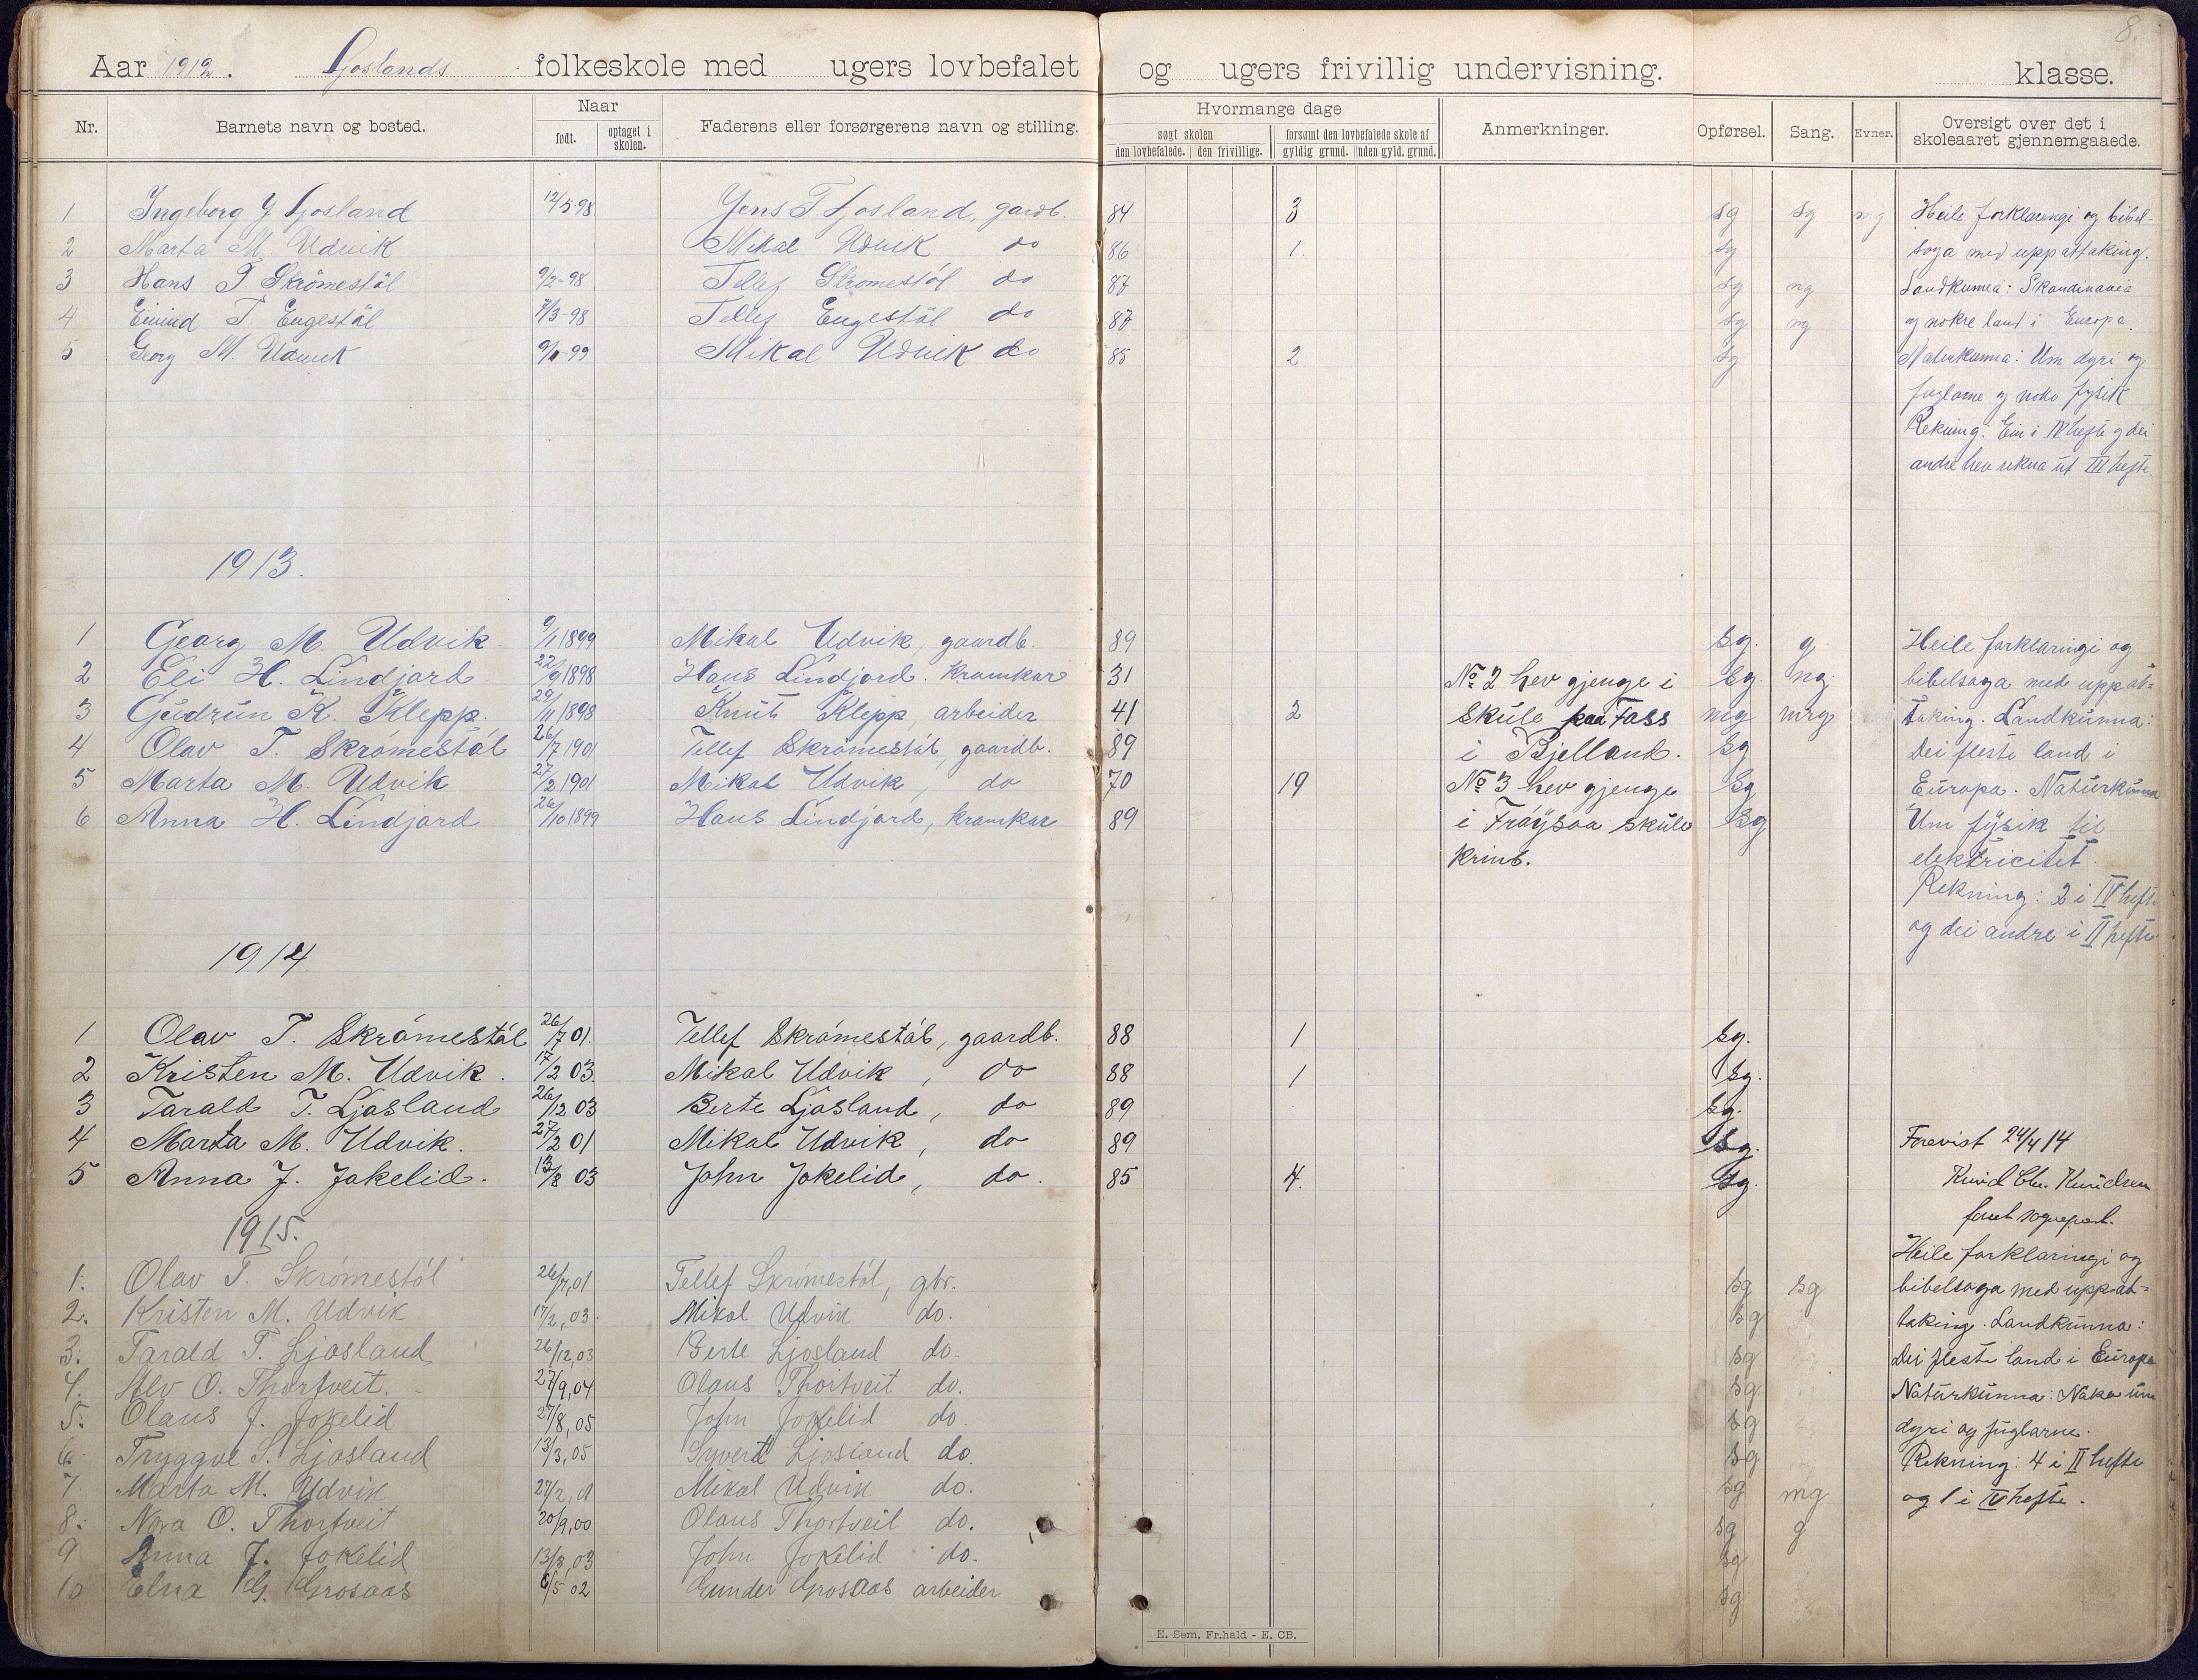 8.
Aar 1912. Ljoslands folkeskole med ugers lovbefalet og ugers frivillig undervisning. klasse.
Nr. Barnets navn og bosted. Naar født. optaget i skolen. Faderens eller forsørgerens navn og stilling. Hvormange dage søgt skolen den lovbefalede. den frivillige. forsømt den lovbefalede skole af gyldig grund. uden gyld. grund. Anmerkninger. Opførsel. Sang. Evner. Oversigt over det i skoleaaret gjennemgaaede.
1 Ingeborg J Ljosland 12/5 98 Jens T Ljosland, gardb. 84 3 sg sg mg Heile forklaringi og bibel-
2 Marta M. Udvik Mikal Udvik do 86 1. sg soga med uppattaking.
3 Hans T. Skrömestöl 9/2-98 Tellef Skromestöl do 87 sg ng Landkunna: Skandinavia
4 Eivind T. Engestöl 7/3-98 Tellef Engestöl do 87 sg ng og nokre land i Europa.
5 Georg M. Udvik 9/1-99 Mikal Udvik do 85 2 sg Naturkunna: Um dyri og
fuglarne og noko fysik
Rekning. Ein i IV hefte og dei
andre hev rekna ut III hefte.
1913.
1 Georg M. Udvik 9/1 1899 Mikal Udvik, gaardb. 89 sg. g Heile forklaringi og
2 Eli H. Lindjord 22/9 1898 Hans Lindjord. Kramkar 31 No 2 hev gjenge i sg. ng. bibelsoga med uppat=
3 Gudrun K. Klepp. 29/11 1898 Knut Klepp, arbeider 41 2 skule paa Foss mg mrg taking. Landkunna:
4 Olav T. Skrömestöl 26/7 1901 Tellef Skrömestöl, gaardb. 89 i Bjelland. sg Dei fleste land i
5 Marta M. Udvik 27/2 1901 Mikal Udvik, do 70 19 No 3 hev gjenge sg Europa. Naturkunna
6 Anna H. Lindjord 26/10 1899 Hans Lindjord, kramkar 89 i Fröysaa skule sg Um fysik til
krins. elektricitet.
Rekning: 2 i IV hefte
og dei andre i II hefte
1914
1 Olav T. Skrömestöl 26/7 01. Tellef Skrömestöl, gaardb. 88 1 sg.
2 Kristen M. Udvik. 17/2 03. Mikal Udvik, do 88 1 sg.
3 Tarald T. Ljosland 26/12 03 Berte Ljosland, do 89 sg.
4 Marta M. Udvik. 27/2 01 Mikal Udvik, do 89 sg. Forevist 24/4 14
5 Anna J. Jokelid. 13/8 03 John Jokelid, do. 85 4. sg. Knud Chr. Knudsen
sognepr.
1915.
Heile forklaringi og
1. Olav T. Skrömestöl 26/7,01 Tellef Skrömestöl, gbr. sg sg bibelsoga med uppat=
2. Kristen M. Udvik 17/2,03. Mikal Udvik do. sg taking. Landkunna:
3. Tarald T. Ljosland 26/12,03 Berte Ljosland do. sg Dei fleste land i Europa
4. Alv O. Thortveit. 27/9,04 Olaus Thortveit do. sg Naturkunna: Noko um
5. Olaus J. Jokelid 27/8,05 John Jokelid do. sg dyri og fuglarne.
6. Tryggve S. Ljosland 13/3,05 Syvert Ljosland do. sg Rekning: 4 i II hefte
7. Marta M. Udvik 27/2,01 Mikal Udvik do. sg mg og 1 i IV hefte.
8. Nora O. Thortveit 20/9,00 Olaus Thortveit do. sg g
9 Anna J. Jokelid 13/8,03 John Jokelid do. sg
10 Elna G. Grosaas 6/5 02 Gunder Grosaas arbeider sg
E. Sem, Fr.hald - E. CB.